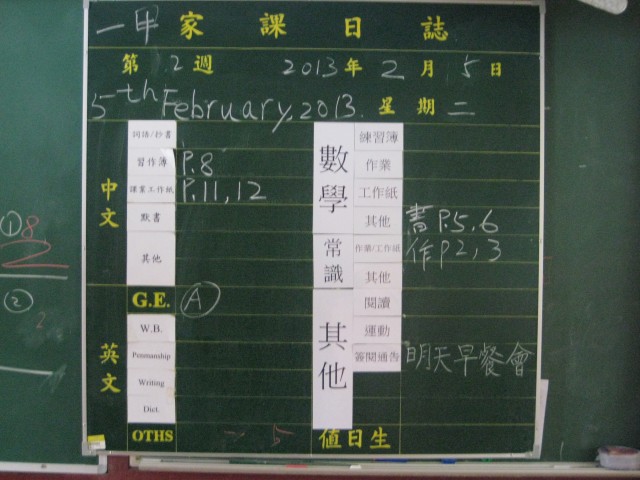 一甲 家課日誌
第 2 週 2013 年 2 月 5 日
5th February, 2013. 星期 二
中文
詞語/抄書
習作簿 P.8
課業工作紙 P.11, 12
默書
其他
英文
G.E. A
W.B.
Penmanship
Writing
Dict.
OTHS
數學
練習簿
作業
工作紙
其他 書 P.5, 6
常識
作業/工作紙 作 P2, 3
其他
其他
閱讀
運動
簽閱通告 明天早餐會
值日生
①8
2
②
2